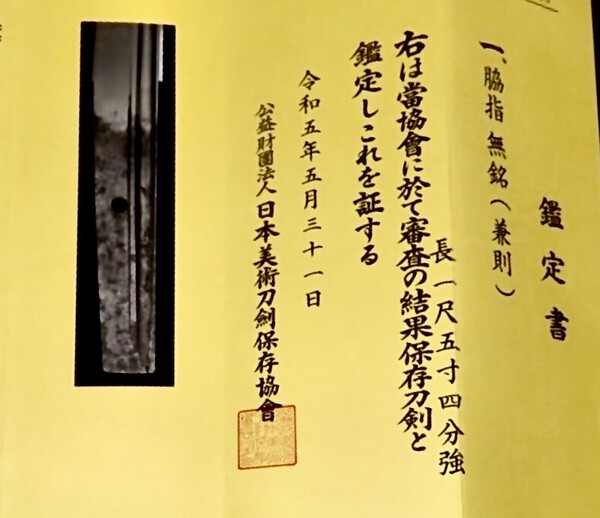 鑑定書
一、脇指 無銘(兼則)
長一尺五寸四分強
右は當協會に於て審査の結果保存刀剣と
鑑定しこれを証する
令和五年五月三十一日
公益財團法人 日本美術刀劍保存協會